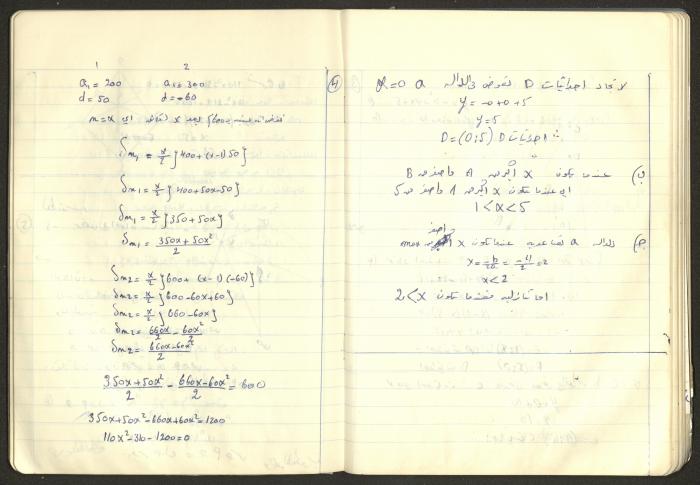 1 2
a₁ = 200 a₁ = 300
d = 50 d = -60
n = x
Sn₁ = x/2 {400 + (x-1) 50}
Sn₁ = x/2 {400 + 50x - 50}
Sn₁ = x/2 {350 + 50x}
Sn₁ = 350x + 50x² / 2
Sn₂ = x/2 {600 + (x-1)(-60)}
Sn₂ = x/2 {600 - 60x + 60}
Sn₂ = x/2 {660 - 60x}
Sn₂ = 660x/2 - 60x²/2
Sn₂ = 660x - 60x² / 2
350x + 50x² / 2 - 660x - 60x² / 2 = 600
350x + 50x² - 660x + 60x² = 1200
110x² - 310 - 1200 = 0
لايجاد احداثيات D نعوض في الدالة a x = 0
y = -0 + 0 + 5
y = 5
احداثيات D = (0;5) D
ب) عندما تكون x اكبر من A واصغر من B
اي عندما تكون x اكبر من 1 واصغر من 5
1 < x < 5
ج) الدالة a تصاعدية عندما تكون x اصغر من max
x = -b/2a = -4/-2 = 2
x < 2
اما تنازلية فعندما تكون 2 < x